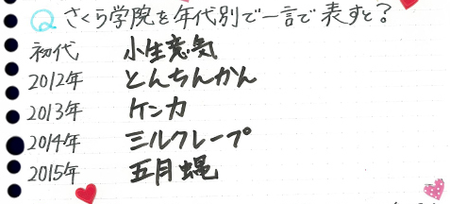 Q さくら学院を年代別で一言で表すと?
初代 小生意気
2012年 とんちんかん
2013年 ケンカ
2014年 ミルクレープ
2015年 五月蝿